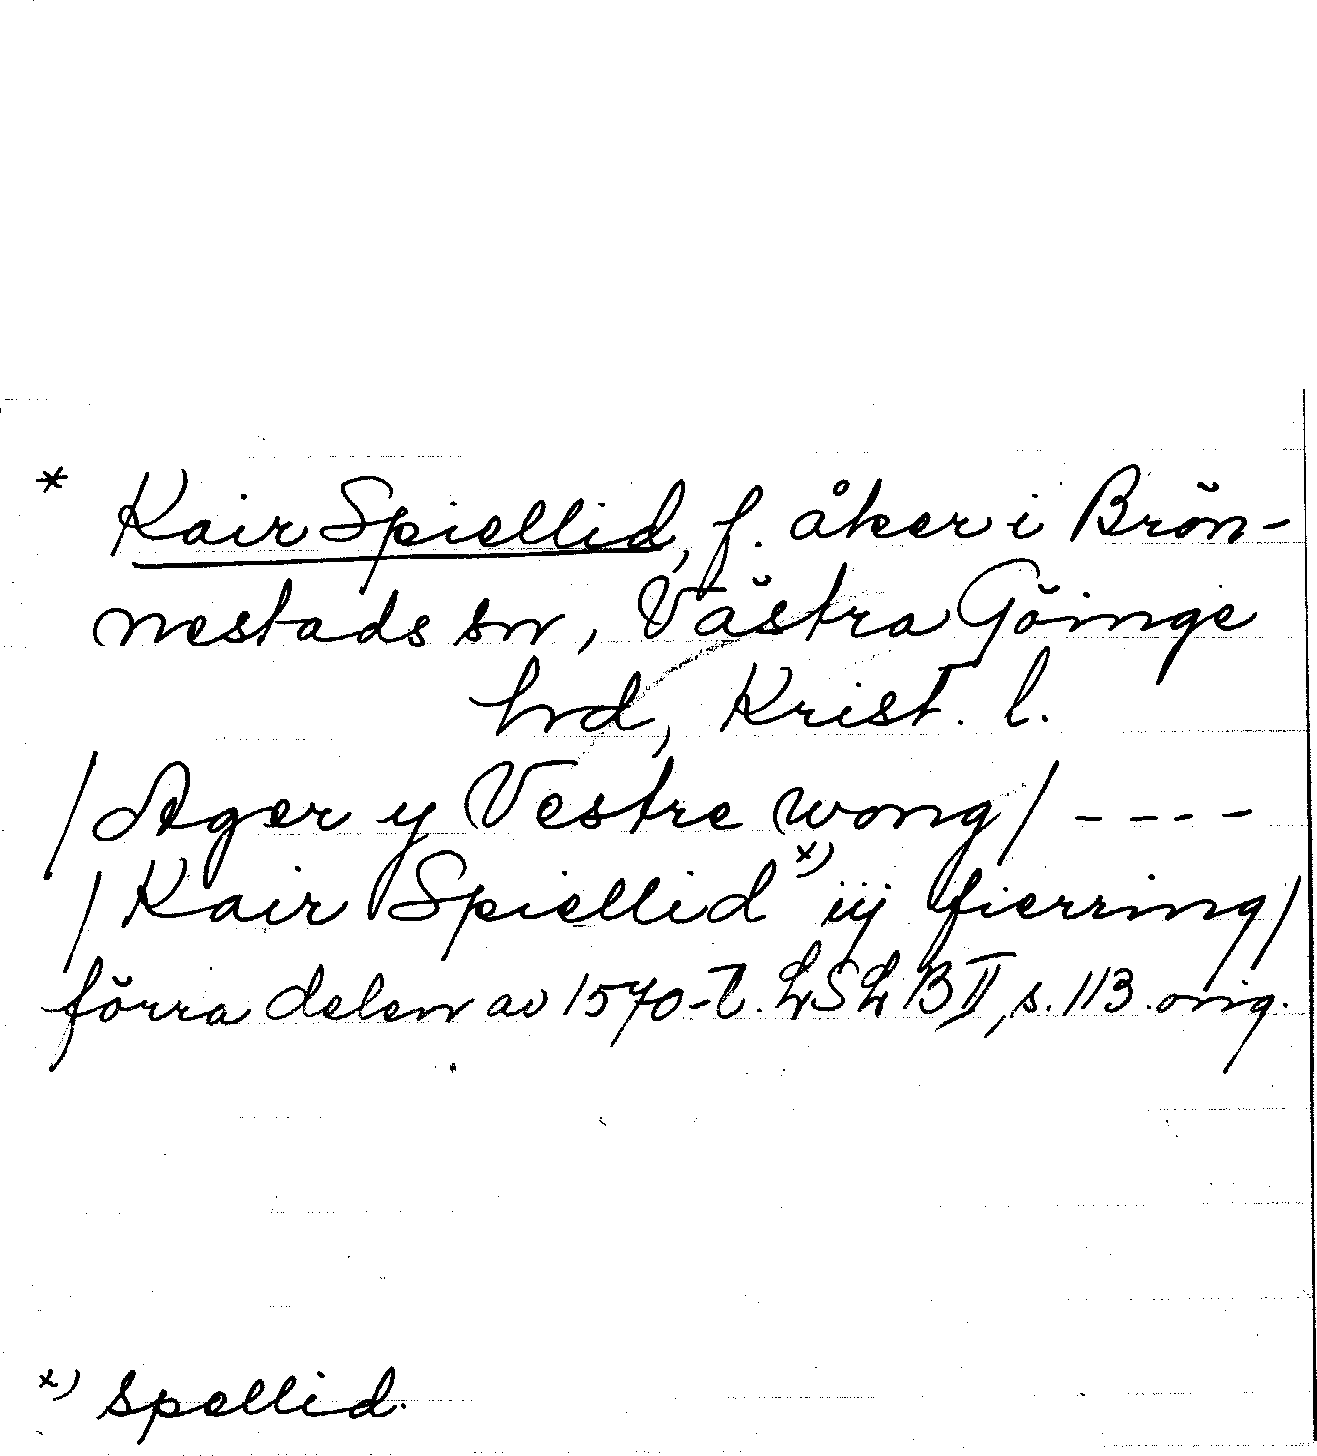 * Kair Spiellid, f. åker i Brön-
nestads sn, Västra Göinge
hrd, Krist. l.
/Ager y Vestre wong/ ----
/Kair Spiellid x) iij fierring/
förra delen av 1570-t. LSLB II, s. 113. orig.
x) spellid.